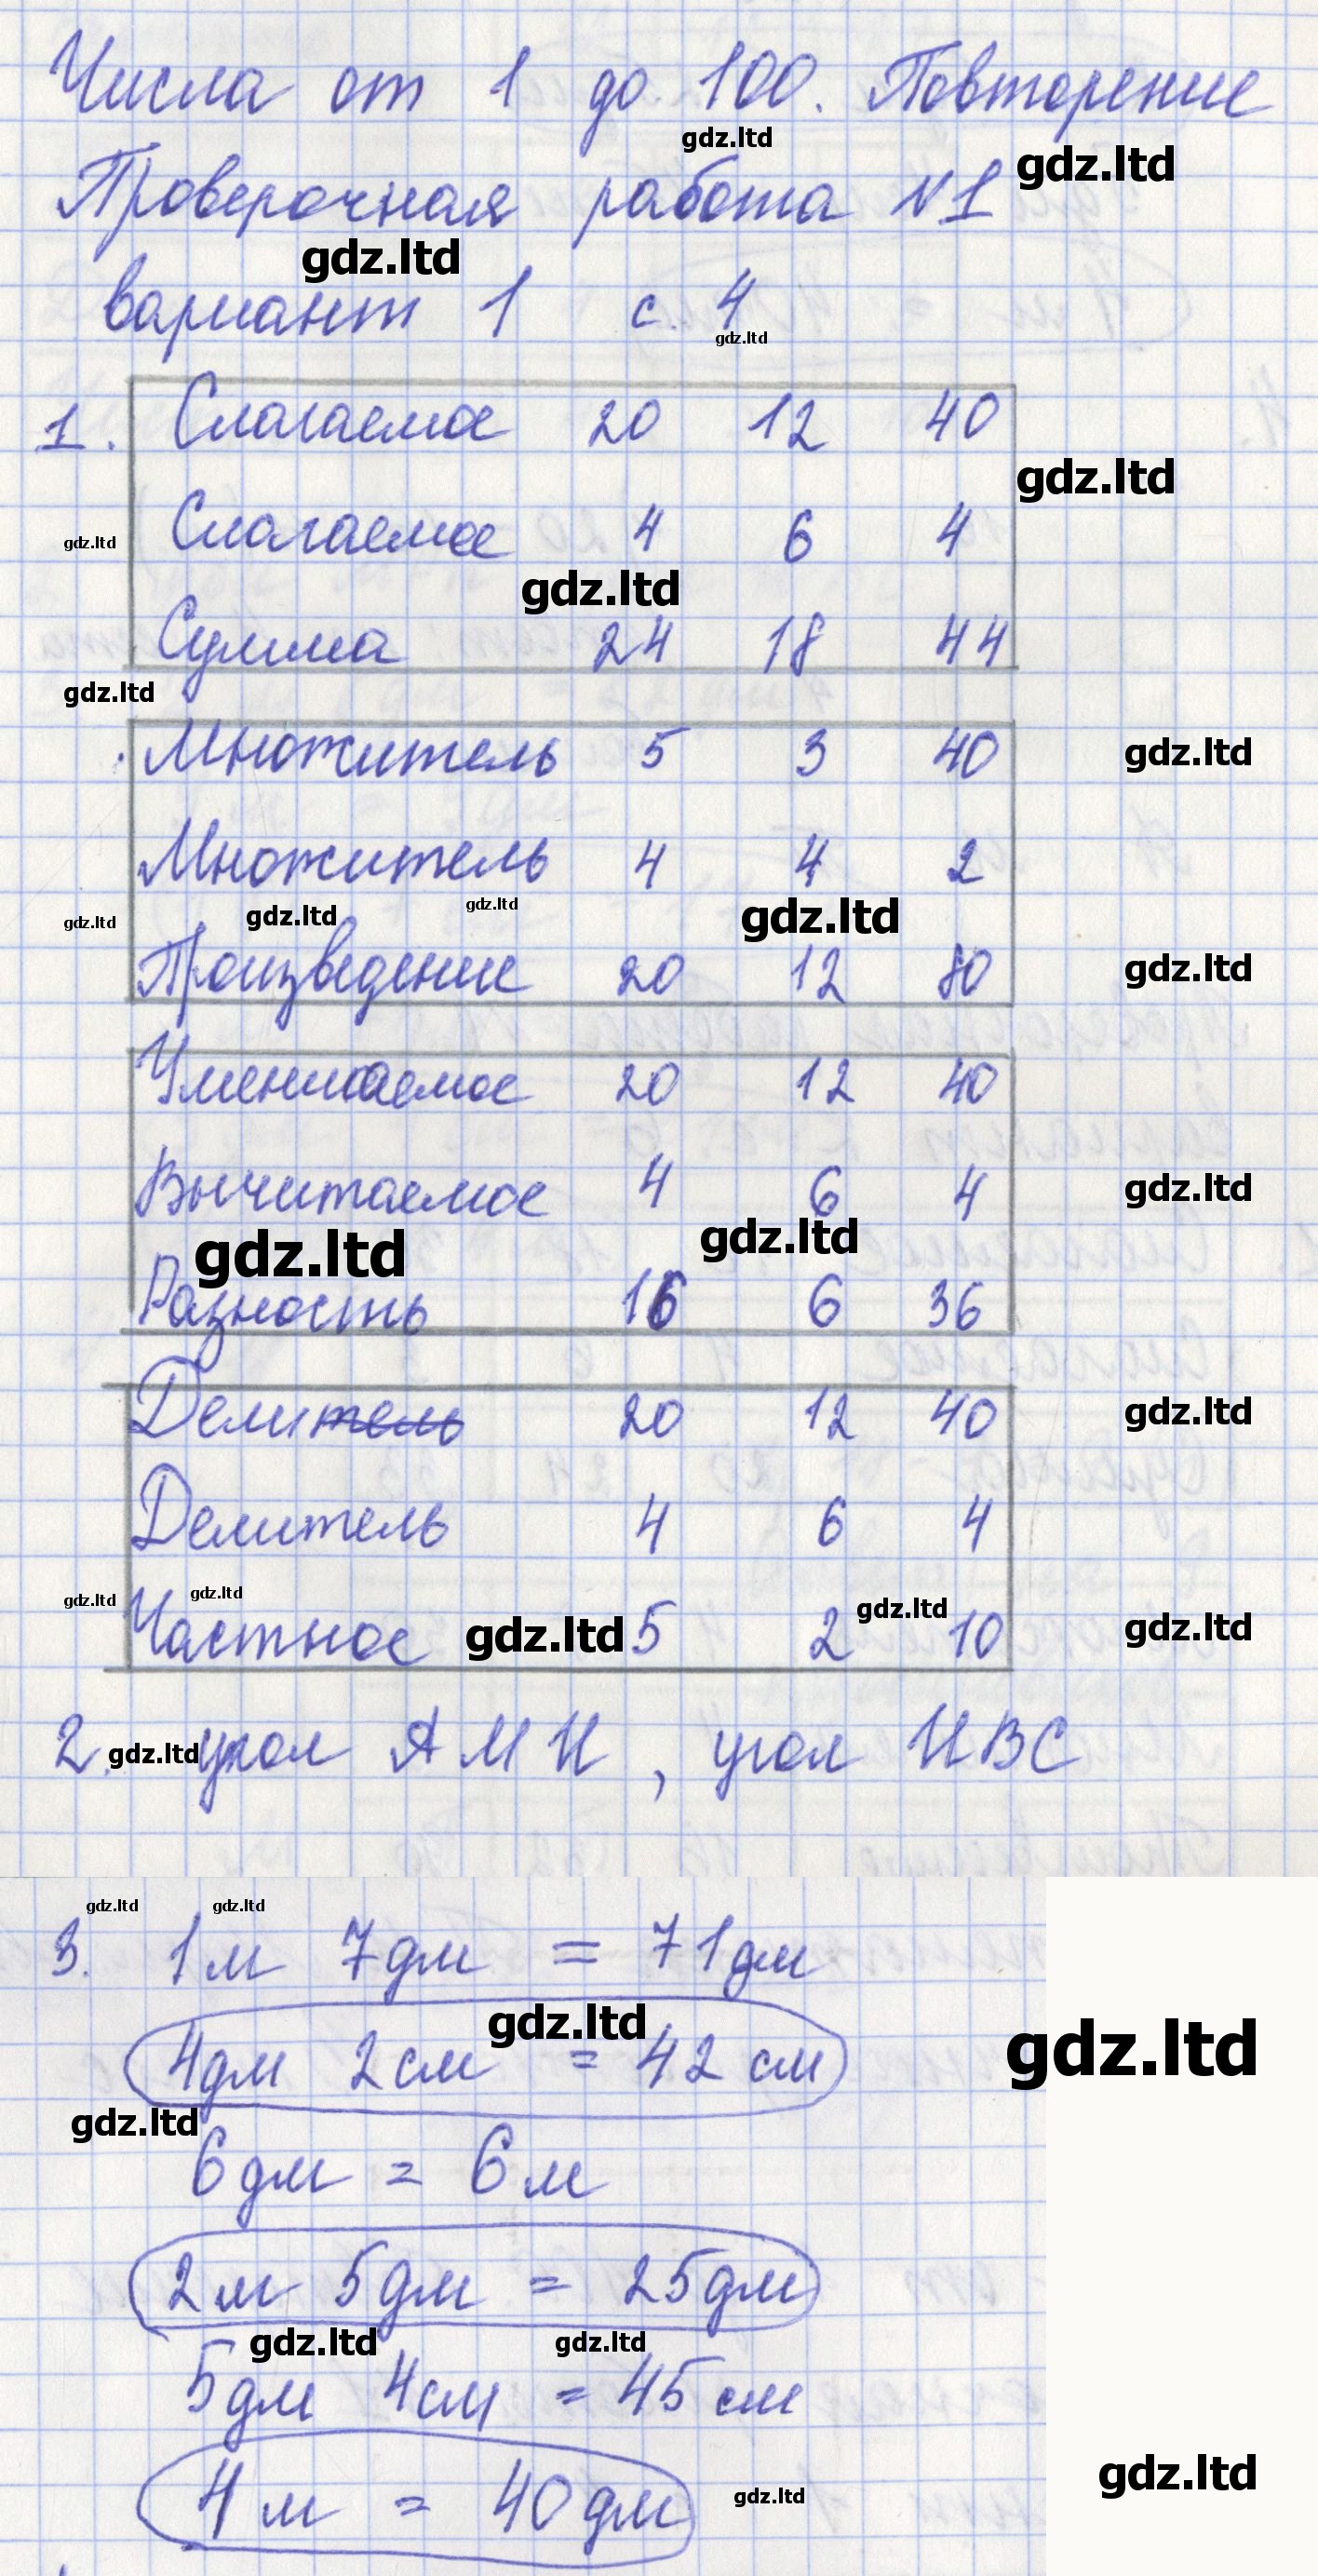 Числа от 1 до 100. Повторение
gdz.ltd
Проверочная работа №1
gdz.ltd
gdz.ltd
вариант 1 с. 4
gdz.ltd
1. Слагаемое 20 12 40
gdz.ltd
Слагаемое 4 6 4
gdz.ltd
gdz.ltd
Сумма 24 18 44
gdz.ltd
Множитель 5 3 40
gdz.ltd
Множитель 4 4 2
gdz.ltd gdz.ltd gdz.ltd gdz.ltd
Произведение 20 12 80
gdz.ltd
Уменшаемое 20 12 40
Вычитаемое 4 6 4
gdz.ltd
gdz.ltd gdz.ltd
Разность 16 6 36
Делитель 20 12 40
gdz.ltd
Делитель 4 6 4
gdz.ltd gdz.ltd gdz.ltd
Частное 5 2 10
gdz.ltd gdz.ltd
2. угол АМН, угол НВС
gdz.ltd
gdz.ltd gdz.ltd
3. 1м 7дм = 71дм
gdz.ltd
4дм 2см = 42 см
gdz.ltd
gdz.ltd
6дм = 6м
2м 5дм = 25дм
gdz.ltd gdz.ltd
5дм 4см = 45 см
gdz.ltd
4м = 40дм
gdz.ltd